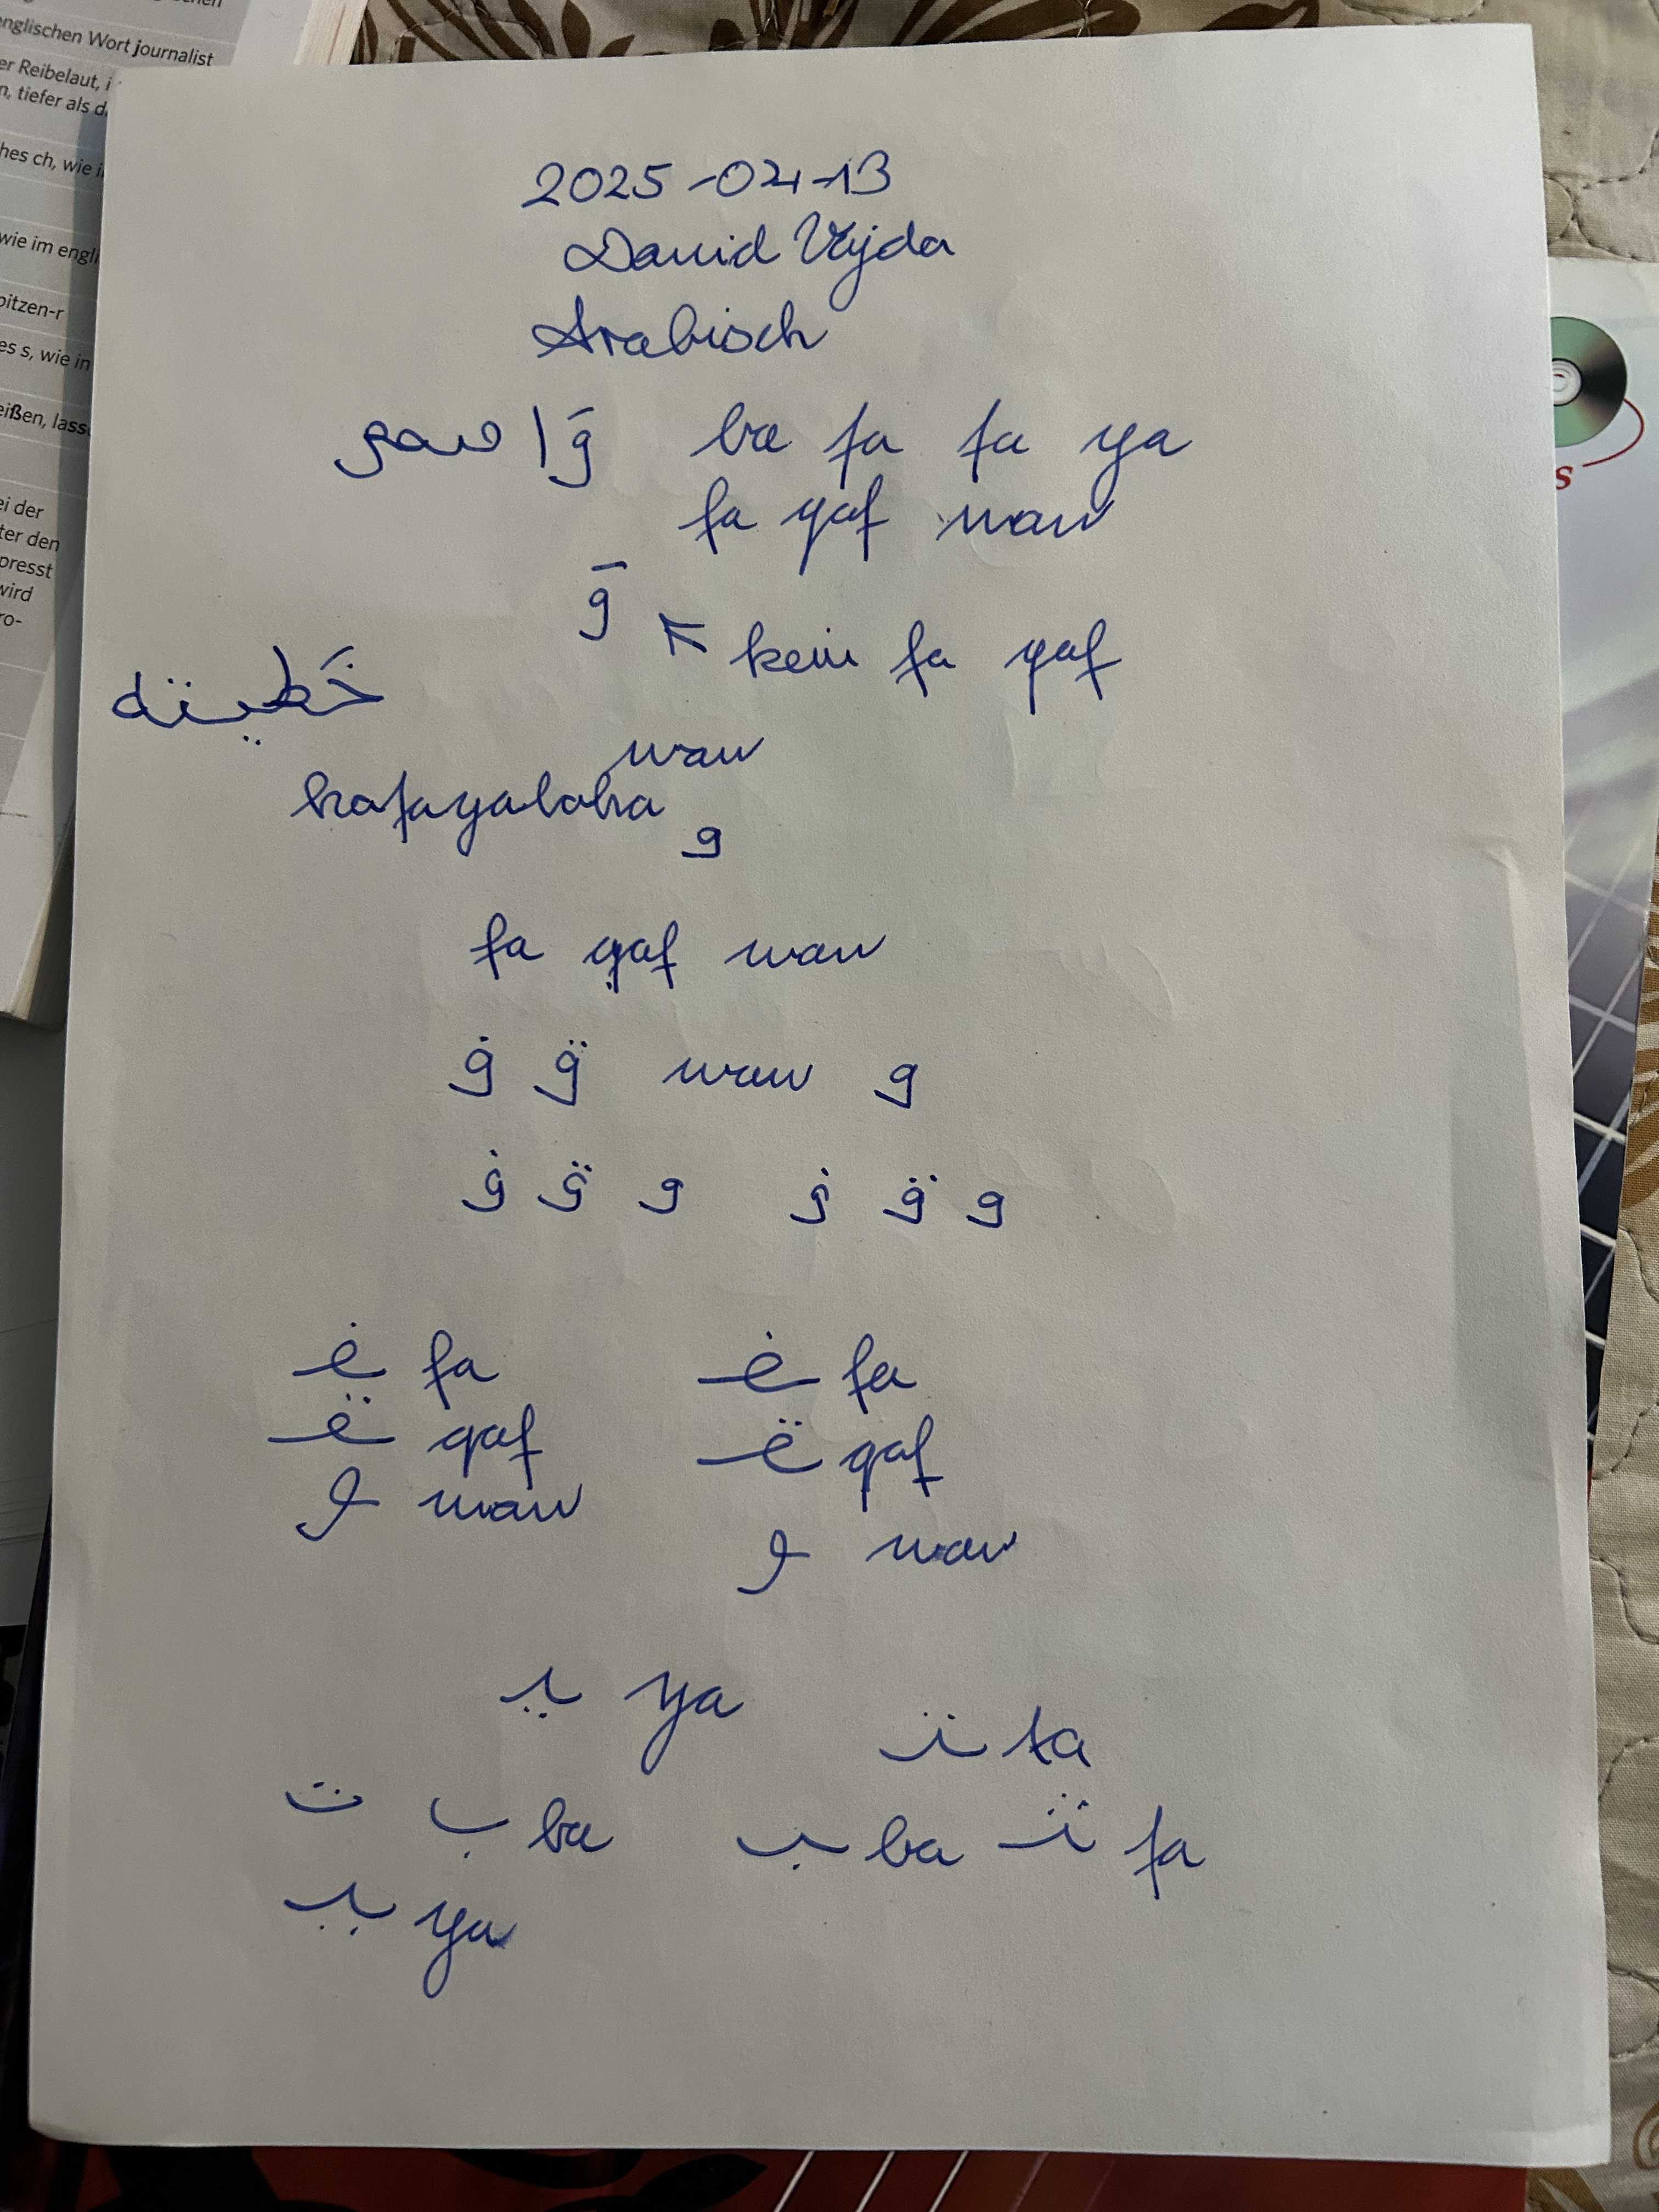 nglischen Wort journalist
er Reibelaut, i
n, tiefer als d
hes ch, wie i
wie im engli
pitzen-r
es s, wie in
eißen, lass
ei der
ter den
presst
wird
ro-
s
2025-04-13
David Vajda
Arabisch
ba fa fa ya
fa qaf waw
وَ
kein fa qaf
waw
و
fa qaf waw
ف ق waw و
ف ق و ف ق و
ف fa ف fa
ق qaf ق qaf
و waw
و waw
ي ya
ت ta
ت ب ba ب ba ت fa
ي ya